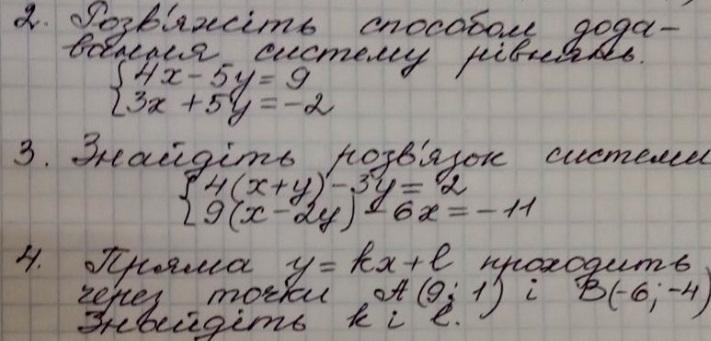 2. Розв'яжіть способом дода-
вання систему рівнянь.
{4x-5y=9
{3x+5y=-2
3. Знайдіть розв'язок системи
{4(x+y)-3y=2
{9(x-2y)-6x=-11
4. Пряма y=kx+l проходить
через точки A(9;1) і B(-6;-4)
Знайдіть k і l.